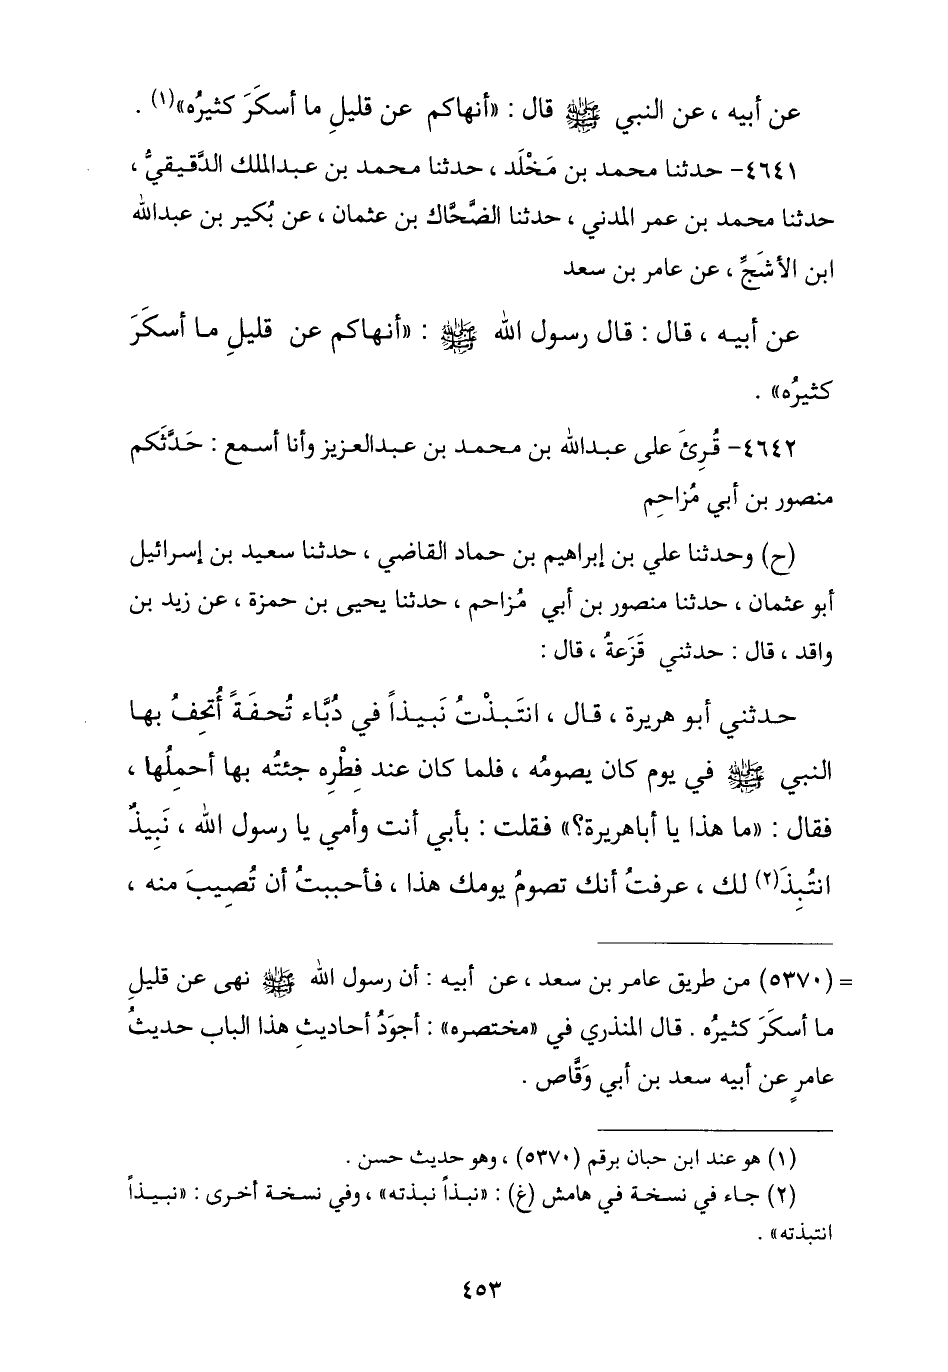 عن أبيه ، عن النبي ﷺ قال : «أنهاكم عن قليلِ ما أسكَرَ كثيرُه»(١) .
٤٦٤١- حدثنا محمد بن مَخْلَد ، حدثنا محمد بن عبدالملك الدَّقيقيُّ ،
حدثنا محمد بن عمر المدني ، حدثنا الضَّحَّاك بن عثمان ، عن بُكير بن عبدالله
ابن الأشَجِّ ، عن عامر بن سعد
عن أبيه ، قال : قال رسول الله ﷺ : «أنهاكم عن قليلِ ما أسكَرَ
كثيرُه» .
٤٦٤٢- قُرِئَ على عبدالله بن محمد بن عبدالعزيز وأنا أسمع : حَدَّثَكم
منصور بن أبي مُزاحِم
(ح) وحدثنا علي بن إبراهيم بن حماد القاضي ، حدثنا سعيد بن إسرائيل
أبو عثمان ، حدثنا منصور بن أبي مُزاحم ، حدثنا يحيى بن حمزة ، عن زيد بن
واقد ، قال : حدثني قَزَعةُ ، قال :
حدثني أبو هريرة ، قال ، انتَبذْتُ نَبيذاً في دُبَّاء تُحفَةً أُتحِفُ بها
النبي ﷺ في يوم كان يصومُه ، فلما كان عند فِطْرِه جئتُه بها أحمِلُها ،
فقال : «ما هذا يا أباهريرة؟» فقلت : بأبي أنت وأمي يا رسول الله ، نَبِيذٌ
انتُبِذَ(٢) لك ، عرفتُ أنك تصومُ يومك هذا ، فأحببتُ أن تُصِيبَ منه ،
= (٥٣٧٠) من طريق عامر بن سعد ، عن أبيه : أن رسول الله ﷺ نهى عن قليلِ
ما أسكَرَ كثيرُه . قال المنذري في «مختصره» : أجوَدُ أحاديثِ هذا الباب حديثُ
عامرٍ عن أبيه سعد بن أبي وَقَّاص .
(١) هو عند ابن حبان برقم (٥٣٧٠) ، وهو حديث حسن .
(٢) جاء في نسخة في هامش (غ) : «نبذاً نبذته» ، وفي نسخة أخرى : «نبيذاً
انتبذته» .
٤٥٣